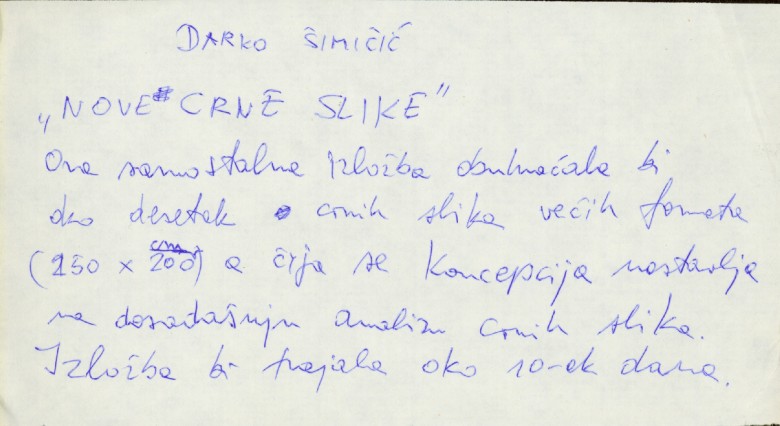 DARKO ŠIMIČIĆ
„NOVE CRNE SLIKE"
Ova samostalna izložba obuhvaćala bi
oko desetak crnih slika većih formata
(150 x 200 cm) a čija se koncepcija nastavlja
na dosadašnju analizu crnih slika.
Izložba bi trajala oko 10-ek dana.